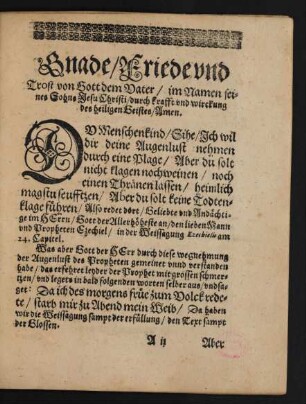 Gnade/Friede vnd
Trost von Gott dem Vater/ im Namen sei-
nes Sohns Jesu Christi/ durch krafft vnd wirckung
des heiligen Geistes/ Amen.
DV Menschenkind/ Sihe/ Ich wil
dir deine Augenlust nehmen
durch eine Plage/ Aber du solt
nicht klagen noch weinen/ noch
einen Thränen lassen/ heimlich
magstu seufftzen/ Aber du solt keine Todten-
klage führen/ Also redet dort/ Geliebte vnd Andächti-
ge im HErrn/ Gott der Allerhöheste an/ den lieben Mann
vnd Propheten Ezechiel/ in der Weissagung Ezechielis am
24. Capitel.
Was aber Gott der HErr durch diese wegnehmung
der Augenlust des Propheten gemeinet vnnd verstanden
habe/ das erfehret leyder der Prophet mit grossen schmer-
tzen/ vnd legets in bald folgenden worten selber aus/ vnd sa-
get: Da ich des morgens früe zum Volck rede-
te/ starb mir zu Abend mein Weib/ Da haben
wir die Weissagung sampt der erfüllung/ den Text sampt
der Glossen.
A ij
Aber